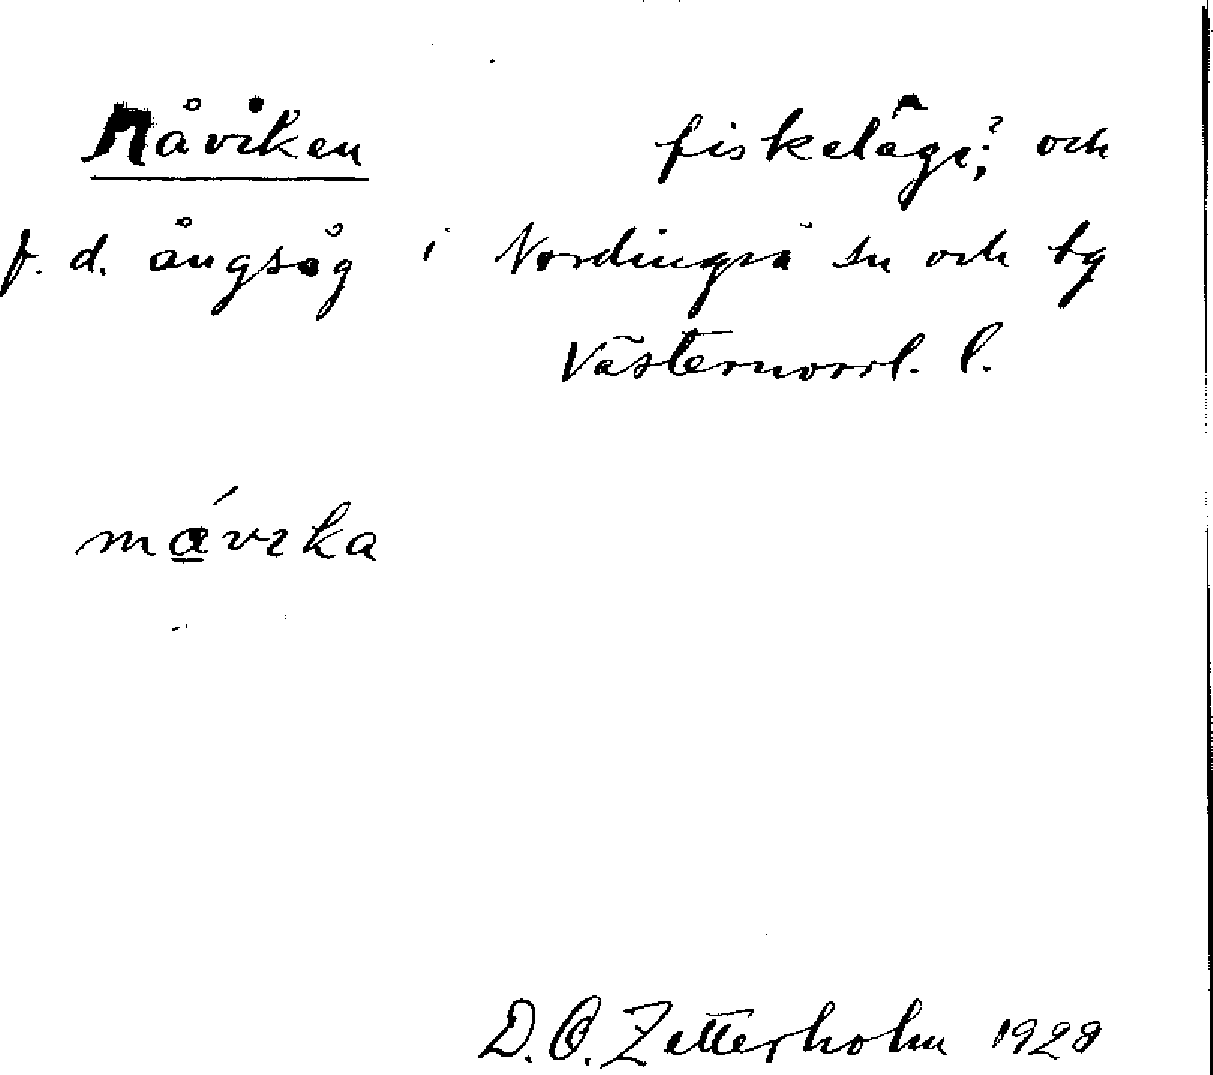 Måviken fiskeläge;? och
f. d. ångsåg i Nordingrå sn och tg
Västernorrl. l.
mávika
D. O. Zetterholm 1928